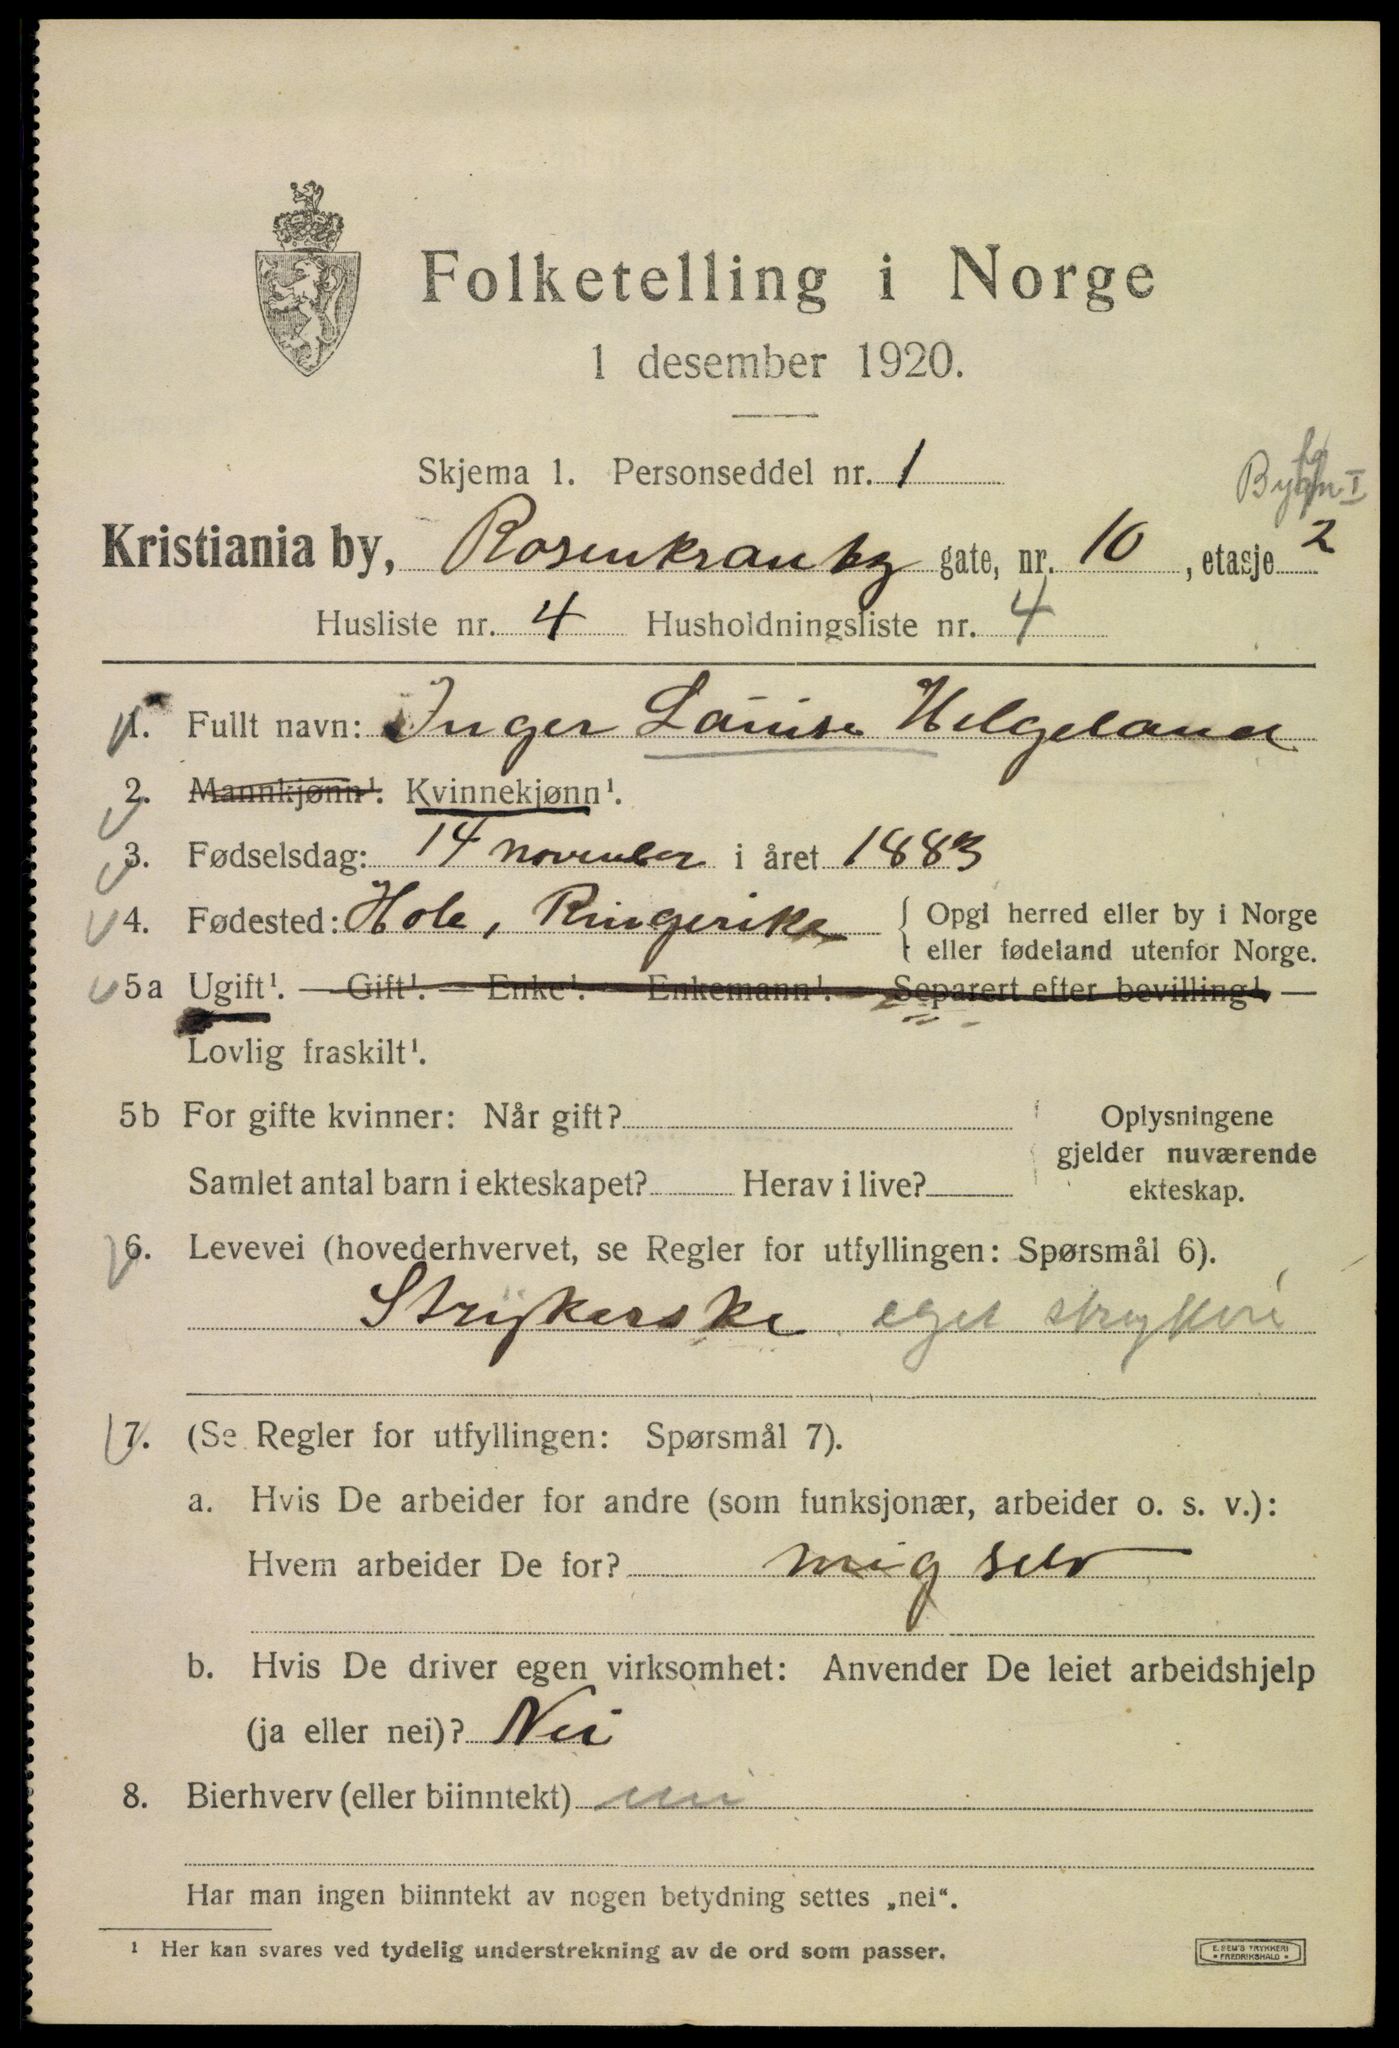 Folketelling i Norge
1 desember 1920.
Skjema 1. Personseddel nr. 1
Bygn I
Kristiania by, Rosenkrantz gate, nr. 10, etasje 2
Husliste nr. 4 Husholdningsliste nr. 4
1. Fullt navn: Inger Louise Helgeland
2. Mannkjønn¹. Kvinnekjønn¹.
3. Fødselsdag: 14 november i året 1883
4. Fødested: Hole, Ringerike { Opgi herred eller by i Norge
eller fødeland utenfor Norge.
5a Ugift¹. — Gift¹. — Enke¹. — Enkemann¹. — Separert efter bevilling¹. —
Lovlig fraskilt¹.
5b For gifte kvinner: Når gift?
Samlet antal barn i ekteskapet? Herav i live?
Oplysningene
gjelder nuværende
ekteskap.
6. Levevei (hovederhvervet, se Regler for utfyllingen: Spørsmål 6).
Strykerske eget strykeri
7. (Se Regler for utfyllingen: Spørsmål 7).
a. Hvis De arbeider for andre (som funksjonær, arbeider o. s. v.):
Hvem arbeider De for? mig selv
b. Hvis De driver egen virksomhet: Anvender De leiet arbeidshjelp
(ja eller nei)? Nei
8. Bierhverv (eller biinntekt) nei
Har man ingen biinntekt av nogen betydning settes „nei“.
¹ Her kan svares ved tydelig understrekning av de ord som passer.
E. SEM'S TRYKKERI
FREDRIKSHALD